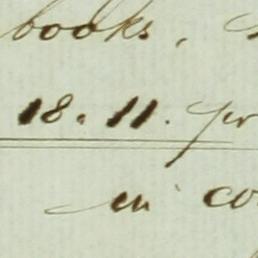 books,
18. 11. pr
en co